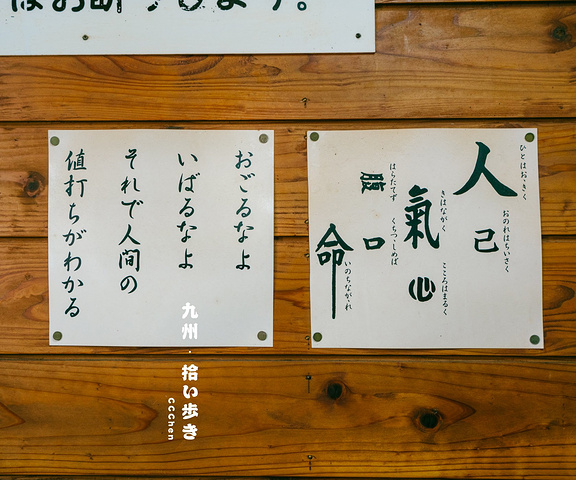 はお断りします。
ひとはおゝきく
人
おのれはちいさく
己
きはながく
氣
こころはまるく
心
はらたてず
腹
くちつゝしめば
口
いのちながれ
命
おごるなよ
いばるなよ
それで人間の
値打ちがわかる
九州・拾い歩き
CCChen